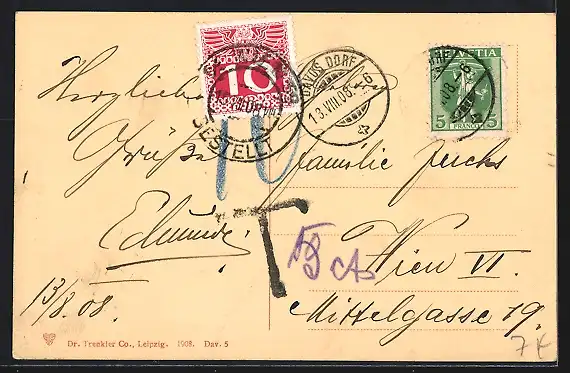 Herzliche
Grüße
Edmund.
13/8.08.
Familie Fuchs
Wien VI.
Mittelgasse 19.
10
BESTELLT
10
DAVOS DORF
13.VIII.08
HELVETIA
5 FRANCO 5
T
5 cts
Dr. Trenkler Co., Leipzig. 1908. Dav. 5
7K